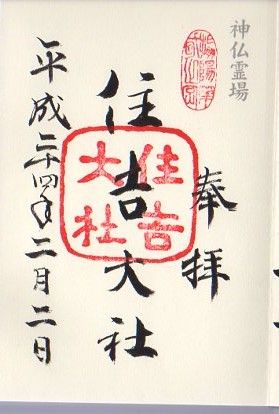 神仏霊場
奉拝
住吉大社
住吉大社
平成二十四年二月二日